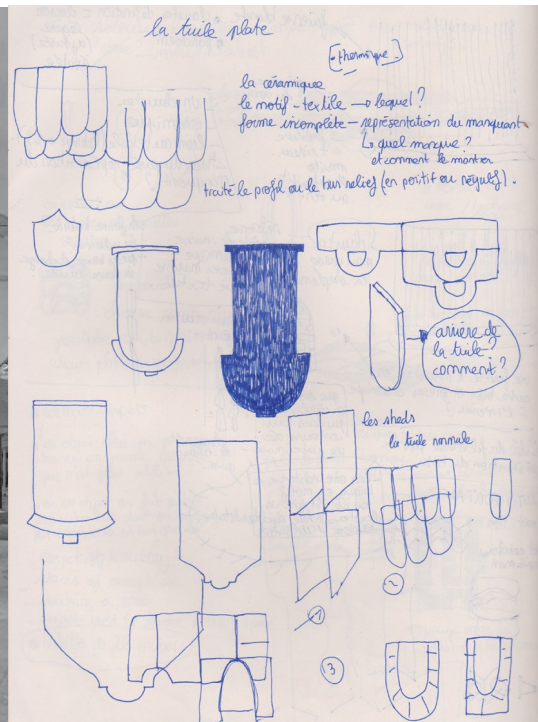 la tuile plate
[thermique]
la céramique
le motif - textile → lequel ?
forme incomplète - représentation du manquant
↳ quel manque ?
et comment le montrer
traité le profil ou le bas relief (en positif ou négatif).
arrière de
la tuile ?
comment ?
les sheds
la tuile normale
1
2
3